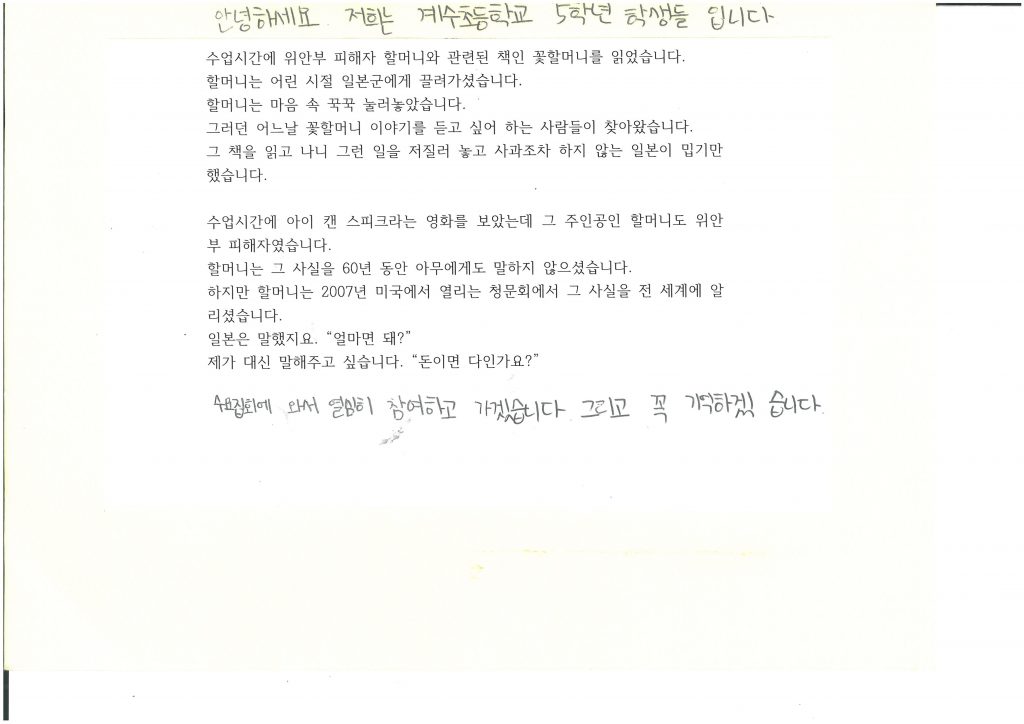 안녕하세요 저희는 계수초등학교 5학년 학생들 입니다
수업시간에 위안부 피해자 할머니와 관련된 책인 꽃할머니를 읽었습니다.
할머니는 어린 시절 일본군에게 끌려가셨습니다.
할머니는 마음 속 꾹꾹 눌러놓았습니다.
그러던 어느날 꽃할머니 이야기를 듣고 싶어 하는 사람들이 찾아왔습니다.
그 책을 읽고 나니 그런 일을 저질러 놓고 사과조차 하지 않는 일본이 밉기만
했습니다.
수업시간에 아이 캔 스피크라는 영화를 보았는데 그 주인공인 할머니도 위안
부 피해자였습니다.
할머니는 그 사실을 60년 동안 아무에게도 말하지 않으셨습니다.
하지만 할머니는 2007년 미국에서 열리는 청문회에서 그 사실을 전 세계에 알
리셨습니다.
일본은 말했지요. “얼마면 돼?”
제가 대신 말해주고 싶습니다. “돈이면 다인가요?”
수요집회에 와서 열심히 참여하고 가겠습니다 그리고 꼭 기억하겠 습니다.